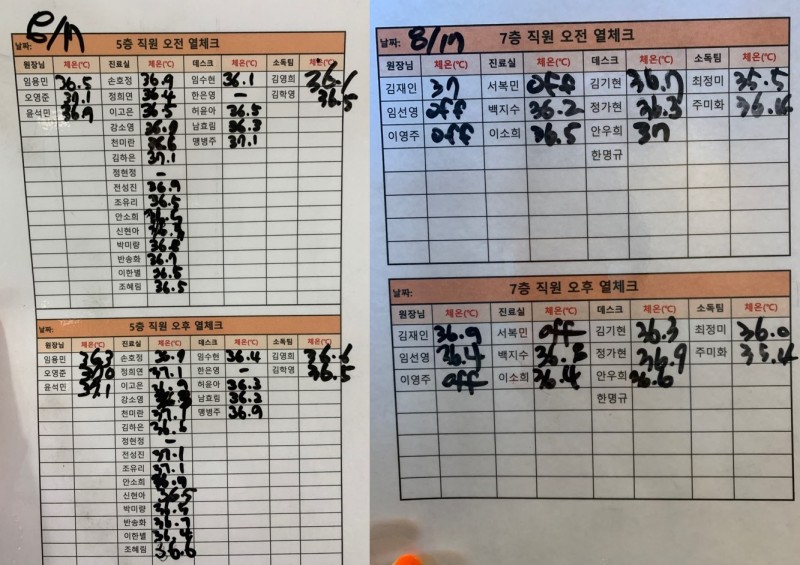 8/17
날짜: 5층 직원 오전 열체크
원장님 체온(℃) 진료실 체온(℃) 데스크 체온(℃) 소독팀 체온(℃)
임용민 36.5 손호정 36.9 임수현 36.1 김영희 36.6
오영준 37.1 정희연 36.4 한은영 - 김학영 36.5
윤석민 36.7 이고은 36.5 허윤아 36.5
강소영 남효림 36.3
천미란 36.6 맹병주 37.1
김하은 37.1
정현정 -
전성진 36.9
조유리 36.5
안소희 36.6
신현아
박미랑 36.8
반송화 36.7
이한별 36.5
조혜림 36.5
5층 직원 오후 열체크
날짜:
원장님 체온(℃) 진료실 체온(℃) 데스크 체온(℃) 소독팀 체온(℃)
임용민 36.3 손호정 36.9 임수현 36.4 김영희 36.6
오영준 37.0 정희연 37.1 한은영 - 김학영 36.5
윤석민 37.1 이고은 36.9 허윤아 36.3
강소영 남효림 36.2
천미란 37.1 맹병주 36.9
김하은 36.6
정현정 -
전성진 37.1
조유리 37.1
안소희
신현아 36.5
박미랑 36.5
반송화 36.7
이한별 36.4
조혜림 36.6
날짜: 8/17 7층 직원 오전 열체크
원장님 체온(℃) 진료실 체온(℃) 데스크 체온(℃) 소독팀 체온(℃)
김재인 37 서복민 off 김기현 36.7 최정미 35.5
임선영 off 백지수 36.2 정가현 36.3 주미화 36.4
이영주 off 이소희 36.5 안우희 37
한명규
7층 직원 오후 열체크
날짜:
원장님 체온(℃) 진료실 체온(℃) 데스크 체온(℃) 소독팀 체온(℃)
김재인 36.9 서복민 off 김기현 36.3 최정미 36.0
임선영 36.4 백지수 36.8 정가현 36.9 주미화 35.4
이영주 off 이소희 36.4 안우희 36.6
한명규